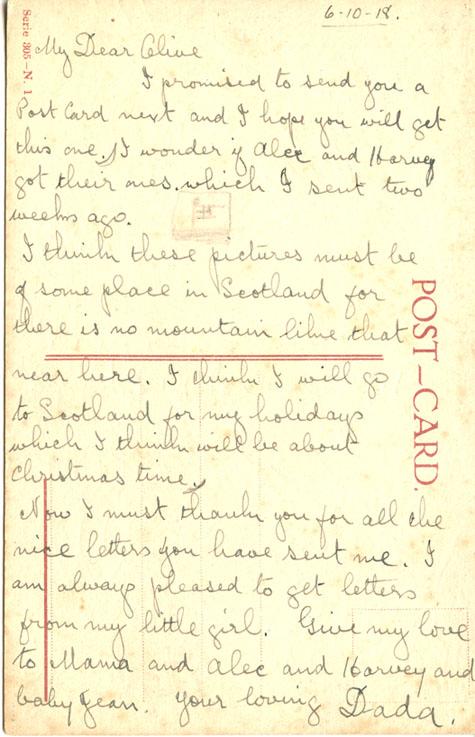 6-10-18.
Serie 305-N. 1
My Dear Olive
I promised to send you a
Post Card next and I hope you will get
this one. I wonder if Alec and Harvey
got their ones which I sent two
weeks ago.
I think these pictures must be
of some place in Scotland for
there is no mountain like that
near here. I think I will go
to Scotland for my holidays
which I think will be about
Christmas time.
Now I must thank you for all the
nice letters you have sent me. I
am always pleased to get letters
from my little girl. Give my love
to Mama and Alec and Harvey and
baby Jean. Your loving Dada.
POST-CARD.